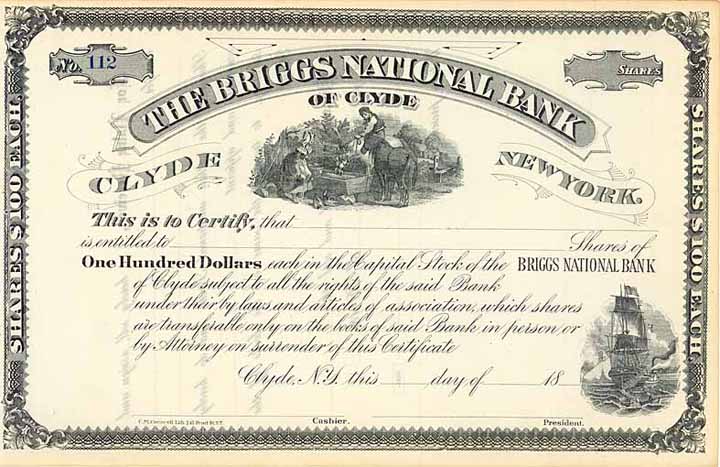 No. 112
SHARES
THE BRIGGS NATIONAL BANK
OF CLYDE
CLYDE
NEW YORK.
SHARES $100 EACH.
SHARES $100 EACH.
This is to Certify, that
is entitled to Shares of
One Hundred Dollars each in the Capital Stock of the BRIGGS NATIONAL BANK
of Clyde subject to all the rights of the said Bank
under their by laws and articles of association, which shares
are transferable only on the books of said Bank in person or
by Attorney on surrender of this Certificate
Clyde, N.Y. this day of 18
Cashier.
President.